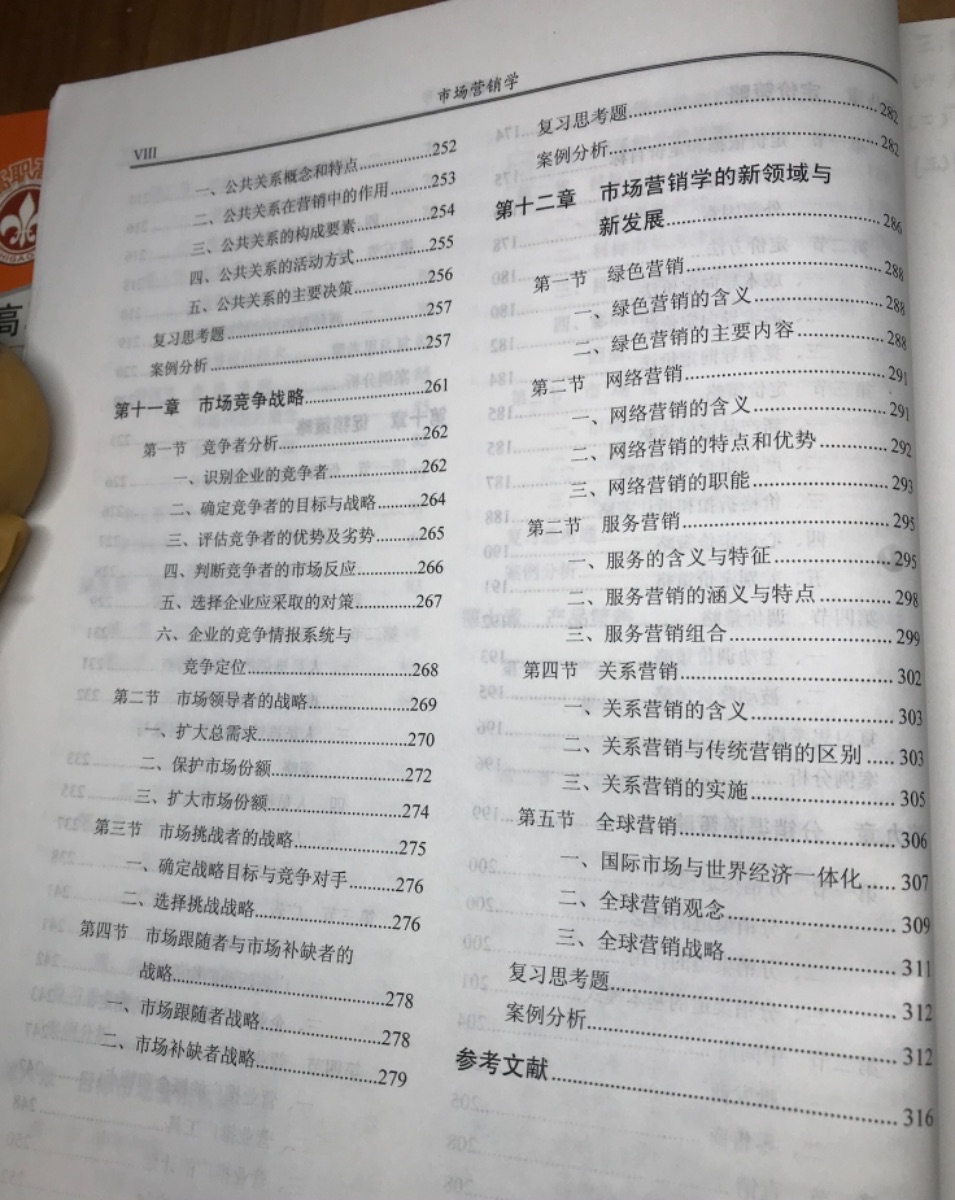 市场营销学
VIII
一、公共关系概念和特点……252
二、公共关系在营销中的作用……253
三、公共关系的构成要素……254
四、公共关系的活动方式……255
五、公共关系的主要决策……256
复习思考题……257
案例分析……257
第十一章 市场竞争战略……261
第一节 竞争者分析……262
一、识别企业的竞争者……262
二、确定竞争者的目标与战略……264
三、评估竞争者的优势及劣势……265
四、判断竞争者的市场反应……266
五、选择企业应采取的对策……267
六、企业的竞争情报系统与
竞争定位……268
第二节 市场领导者的战略……269
一、扩大总需求……270
二、保护市场份额……272
三、扩大市场份额……274
第三节 市场挑战者的战略……275
一、确定战略目标与竞争对手……276
二、选择挑战战略……276
第四节 市场跟随者与市场补缺者的
战略……278
一、市场跟随者战略……278
二、市场补缺者战略……279
复习思考题……282
案例分析……282
第十二章 市场营销学的新领域与
新发展……286
第一节 绿色营销……288
一、绿色营销的含义……288
二、绿色营销的主要内容……288
第二节 网络营销……291
一、网络营销的含义……291
二、网络营销的特点和优势……292
三、网络营销的职能……293
第三节 服务营销……295
一、服务的含义与特征……295
二、服务营销的涵义与特点……298
三、服务营销组合……299
第四节 关系营销……302
一、关系营销的含义……303
二、关系营销与传统营销的区别……303
三、关系营销的实施……305
第五节 全球营销……306
一、国际市场与世界经济一体化……307
二、全球营销观念……309
三、全球营销战略……311
复习思考题……312
案例分析……312
参考文献……316
高